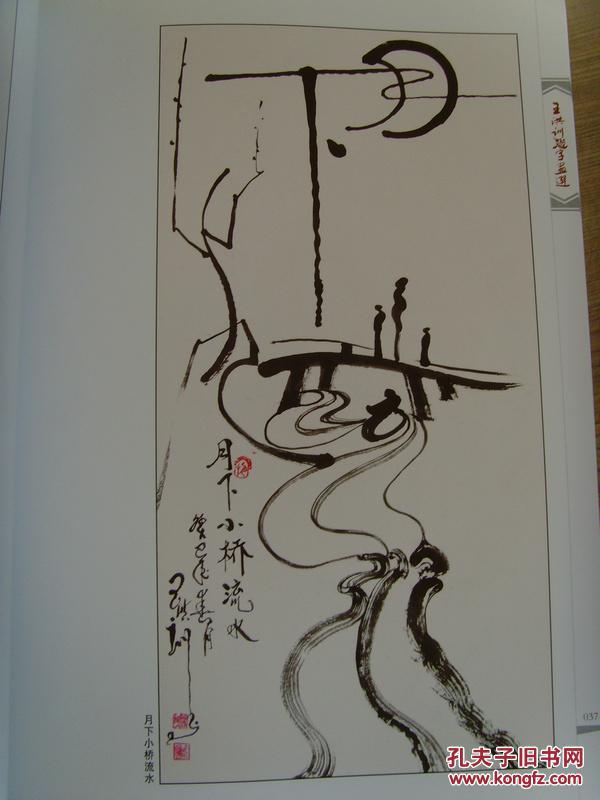 王洪训题字画选
月下小桥流水
癸巳年春月
王洪训
月下小桥流水
037
孔夫子旧书网
www.kongfz.com